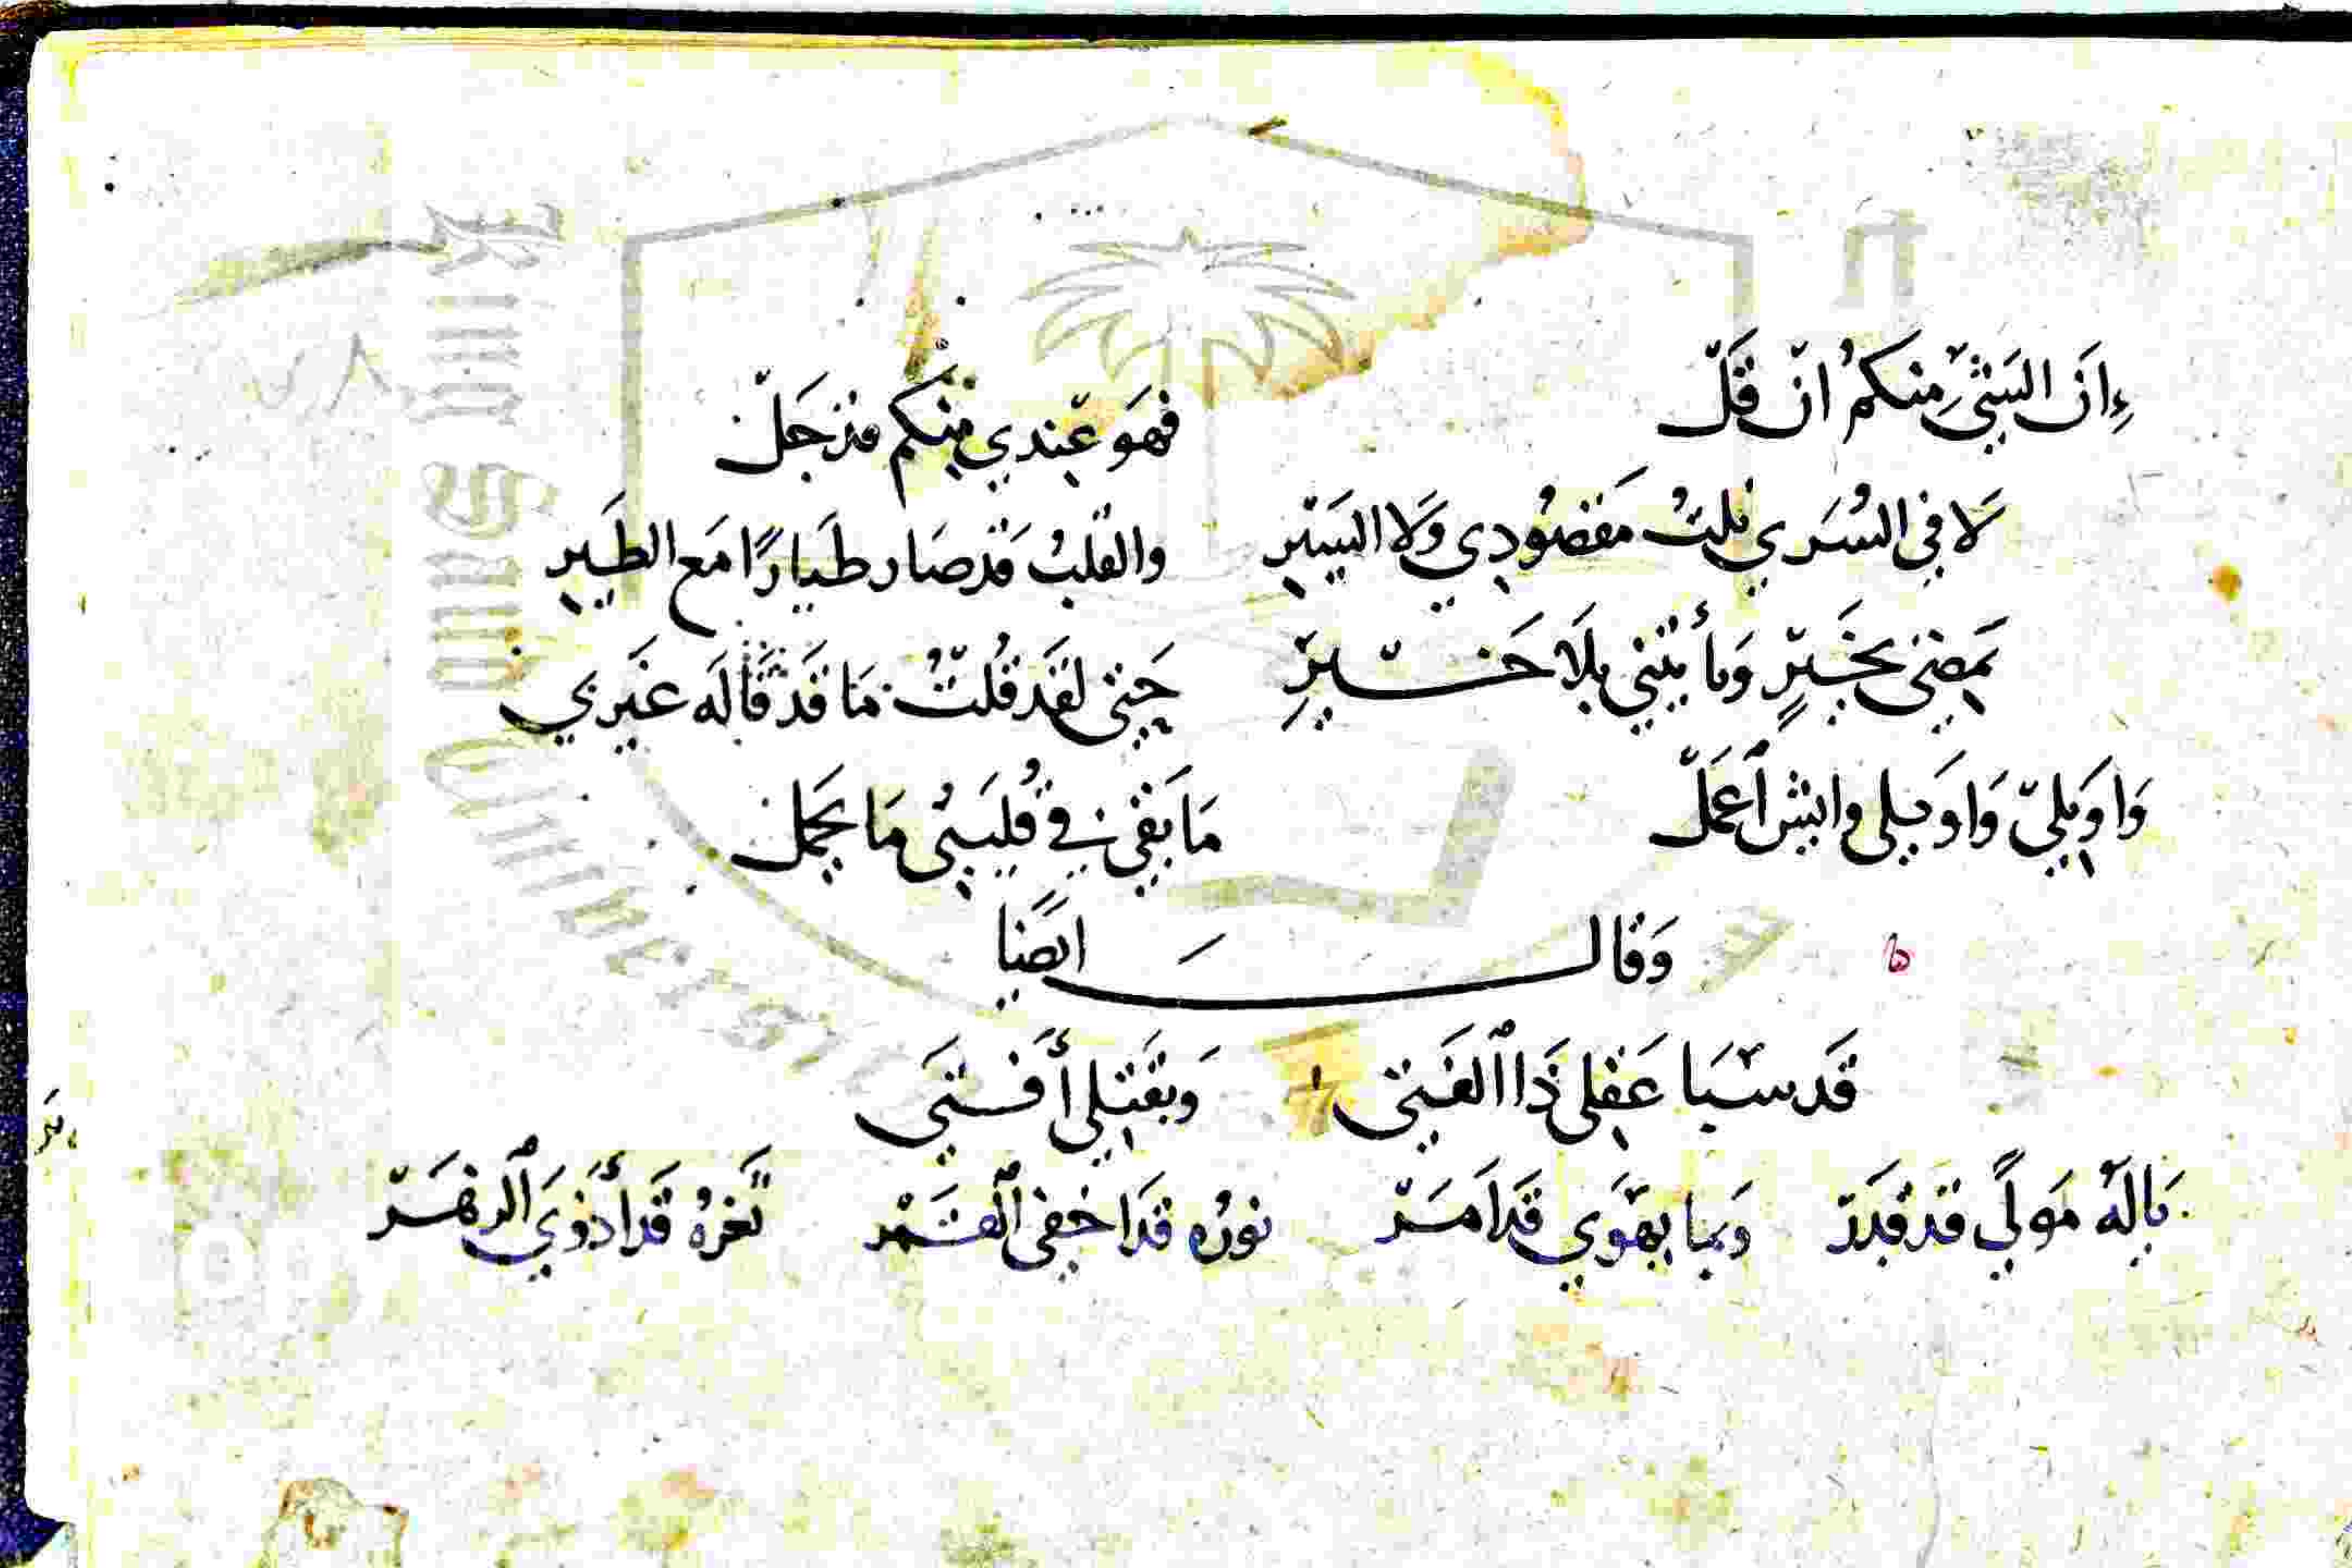 إِنَّ الشَيْ مِنكم ان قَلّ فهَو عِندي مِنكم قد جَلّ
لَا في السُرَي نلتُ مَقصُودِي وَلَا السَيْرِ والقلبُ قَد صَار طَيارًا مَع الطَيرِ
يَمضِى بخَيرٍ وَيأتيني بلَا خَيرِ حَتى لقَد قُلتُ مَا قَد قَالَه غَيرِي
وَاوَيلِيّ وَاوَيلى وايش أعمَلّ مَا بَقى في قُليبى مَا يحمل
وَقَال ايضًا
قَد سَبَا عَقلى ذَا الفَتى وَبقَتلِي أَفتَى
يَالَهُ مَولًي قد قَدَر وَبما يهَوَي قَد اَمَر نورُه قَد اخفى القمَر ثغرهُ قَد أذوَي الزهَر